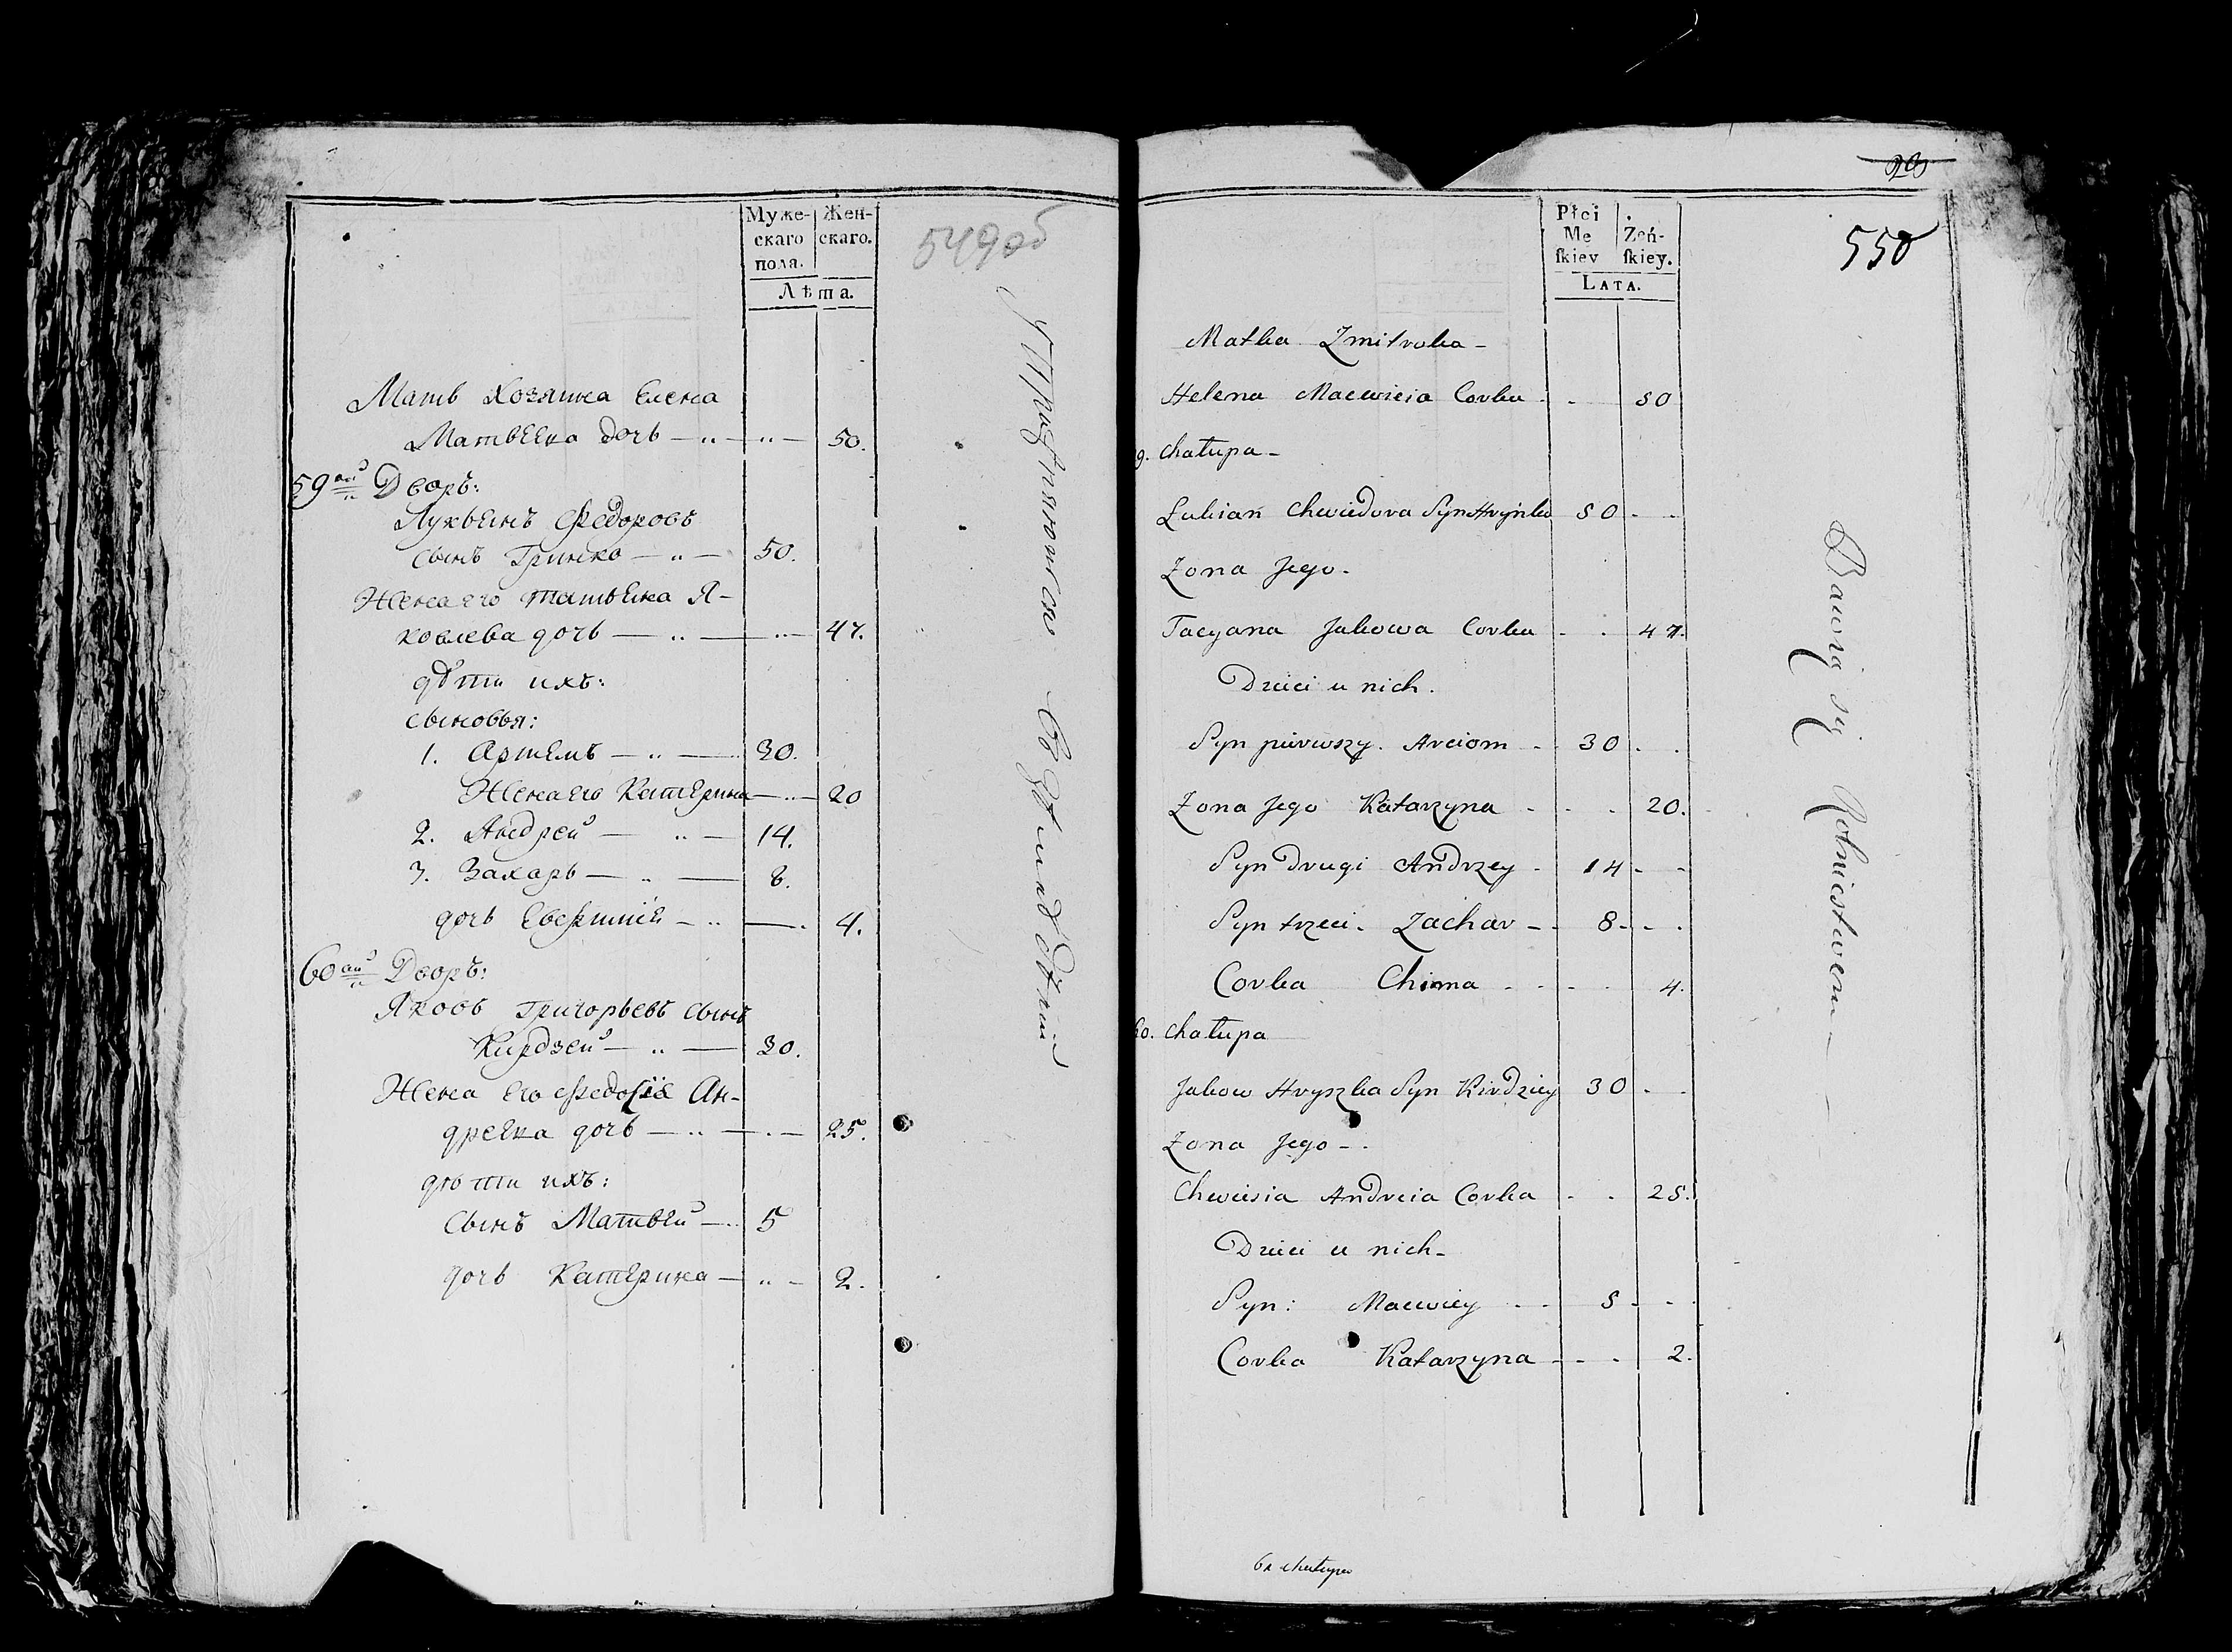 Муже-
скаго
пола.
Жен-
скаго.
Лѣта.
549об
Мать Хозяина Елена
Матвѣева дочь — „ — „ — 50.
59ый Дворъ:
Лукьянъ Федоровъ
сынъ Гринко — „ — 50.
Жена его Татьяна Я-
ковлева дочь — „ — „ — 47.
дѣти ихъ:
сыновья:
1. Артемъ — „ — 30.
Жена его Катерина — „ — 20
2. Андрей — „ — 14.
3. Захаръ — „ — 8.
дочь — „ — 4.
60ый Дворъ:
Яковъ Григорьевъ сынъ
Кирдзей — „ — 30.
Жена его Федосія Ан-
дреева дочь — „ — „ — 25.
дѣти ихъ:
Сынъ Матвѣй — 5
дочь Катерина — „ — 2.
Упражняются въ земледѣліи
20
Płci
Me
ſkiey
Zeń-
ſkiey.
LATA.
550
Matka Zmitroka -
Helena Macwieia Corka - - 50
9. Chałupa -
Łukian Chwiedora Syn Hryńko 50 - -
Zona Jego -
Tacyana Jakowa Corka - - 47.
Dzieci u nich.
Syn pierwszy. Arciom - 30 - .
Zona Jego Katarzyna - - . 20.
Syn Drugi Andrzey - 14 - -
Syn trzeci. Zachar - - 8 - - .
Corka Chima - - - - 4.
60. Chałupa
Jakow Hryszka Syn Kirdziey 30 - -
Zona Jego - .
Chwiesia Andreia Corka - . 25.
Dzieci u nich -
Syn: Macwiey - - 5 - - .
Corka Katarzyna - - . 2.
Bawią się Rolnictwem —
61 chałupa